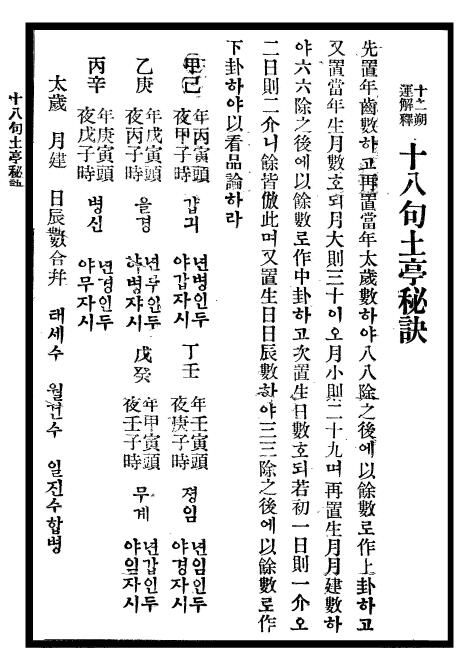 十二朔
運解釋
十八句土亭秘訣
先置年齒數하고再置當年太歲數하야八八除之後에以餘數로作上卦하고
又置當年生月數호되月大則三十이오月小則二十九며再置生月月建數하
야六六除之後에以餘數로作中卦하고次置生日數호되若初一日則一介오
二日則二介니餘皆倣此며又置生日日辰數하야三三除之後에以餘數로作
下卦하야以看品論하라
甲己 年丙寅頭 夜甲子時 갑긔 년병인두 야갑자시 丁壬 年壬寅頭 夜庚子時 졍임 년임인두 야경자시
乙庚 年戊寅頭 夜丙子時 을경 년무인두 야병자시 戊癸 年甲寅頭 夜壬子時 무계 년갑인두 야임자시
丙辛 年庚寅頭 夜戊子時 병신 년경인두 야무자시
太歲 月建 日辰數合幷 태세수 월건수 일진수합병
十八句土亭秘訣